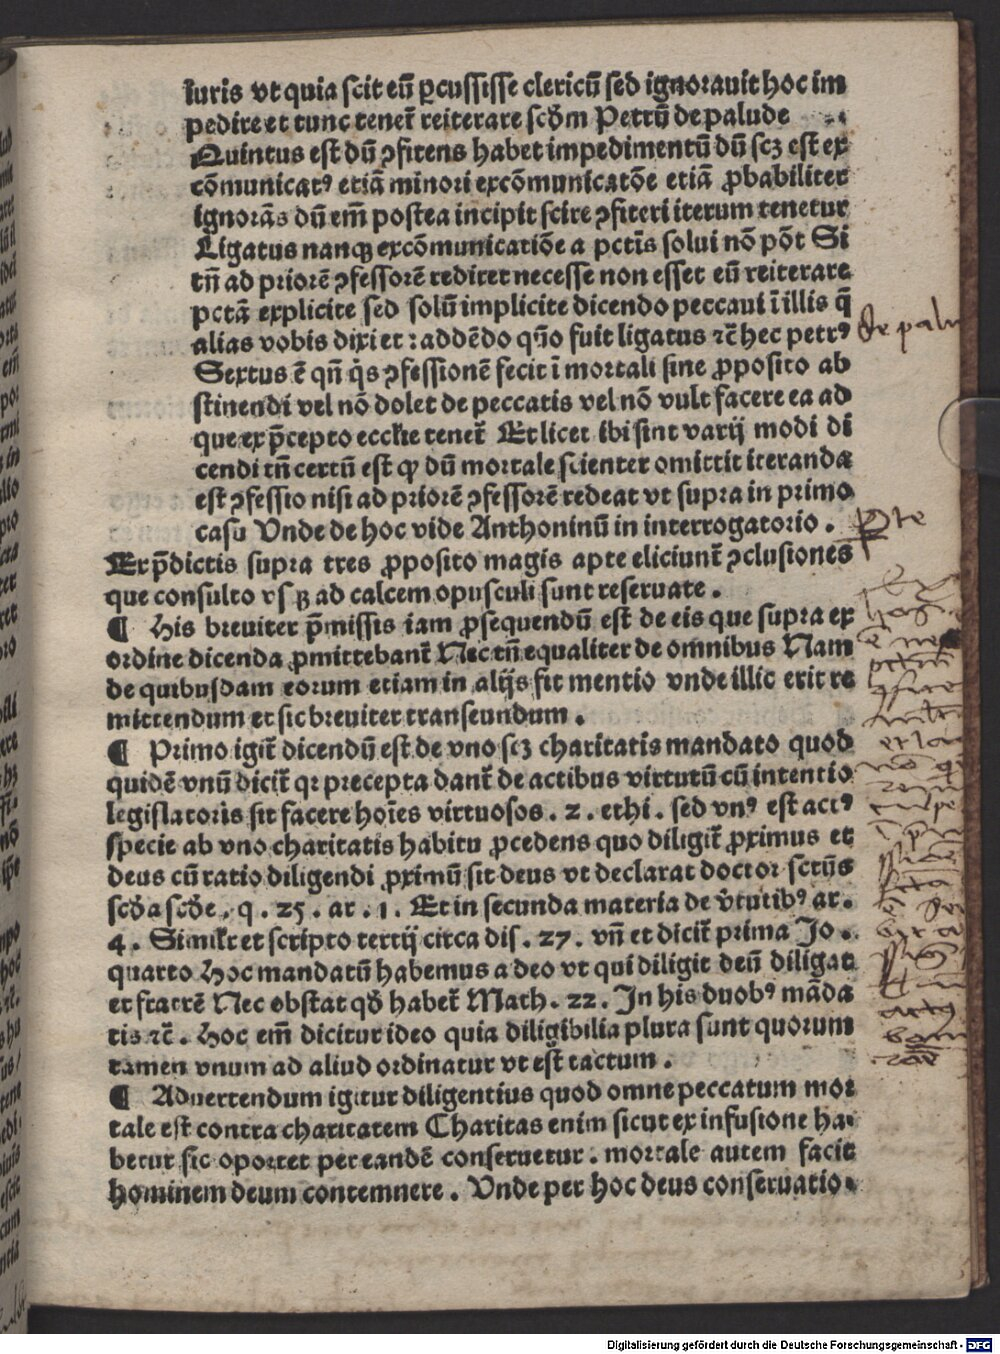 iuris vt quia scit eū ꝑcussisse clericū sed ignorauit hoc im
pedire et tunc tenet᷑ reiterare scd̄m Petrū de palude
Quintus est dū ꝯfitens habet impedimentū dū scꝫ est ex
cōmunicatꝰ etiā minori excōmunicatōe etiā ꝓbabiliter
ignorās dū em̄ postea incipit scire ꝯfiteri iterum tenetur
Ligatus nanqꝫ excōmunicatiōe a pctīs solui nō pōt Si
tn̄ ad priorē ꝯfessorē rediret necesse non esset eū reiterare
pctā explicite sed solū implicite dicendo peccaui ī illis q̄
alias vobis dixi et : addēdo qn̄o fuit ligatus ⁊c̄ hec petrꝰ
Sextus ē qn̄ q̇s ꝯfessionē fecit ī mortali sine ꝓposito ab
stinendi vel nō dolet de peccatis vel nō vult facere ea ad
que ex p̄cepto eccłie tenet᷑ Et licet ibi sint varij modi di
cendi tn̄ certū est ꝙ dū mortale scienter omittit iteranda
est ꝯfessio nisi ad priorē ꝯfessorē redeat vt supra in primo
casu Unde de hoc vide Anthoninū in interrogatorio .
Ex p̄dictis supra tres ꝓposito magis apte eliciunt᷑ ꝯclusiones
que consulto vsqꝫ ad calcem opusculi sunt reseruate .
¶ His breuiter p̄missis iam ꝓsequendū est de eis que supra ex
ordine dicenda ꝓmittebant᷑ Nec tn̄ equaliter de omnibus Nam
de quibusdam eorum etiam in alijs fit mentio vnde illic erit re
mittendum et sic breuiter transeundum .
¶ Primo igit᷑ dicendū est de vno scꝫ charitatis mandato quod
quidē vnū dicit᷑ qr precepta dant᷑ de actibus virtutū cū intentio
legislatoris sit facere hoīes virtuosos . 2 . ethi . sed vnꝰ est actꝰ
specie ab vno charitatis habitu ꝓcedens quo diligit᷑ ꝓximus et
deus cū ratio diligendi ꝓximū sit deus vt declarat doctor sctūs
scd̄a scd̄e . q . 25 . ar . 1 . Et in secunda materia de v̄tutibꝰ ar .
4 . Simiłr et scripto tertij circa dis . 27 . vn̄ et dicit᷑ prima Jo .
quarto Hoc mandatū habemus a deo vt qui diligit deū diligat
et fratrē Nec obstat qd̄ habet᷑ Math . 22 . In his duobꝰ māda
tis ⁊c̄ . Hoc em̄ dicitur ideo quia diligibilia plura sunt quorum
tamen vnum ad aliud ordinatur vt est tactum .
¶ Aduertendum igitur diligentius quod omne peccatum mor
tale est contra charitatem Charitas enim sicut ex infusione ha
betur sic oportet per eandē conseruetur . mortale autem facit
hominem deum contemnere . Unde per hoc deus conseruatio
de palu
Digitalisierung gefördert durch die Deutsche Forschungsgemeinschaft - DFG